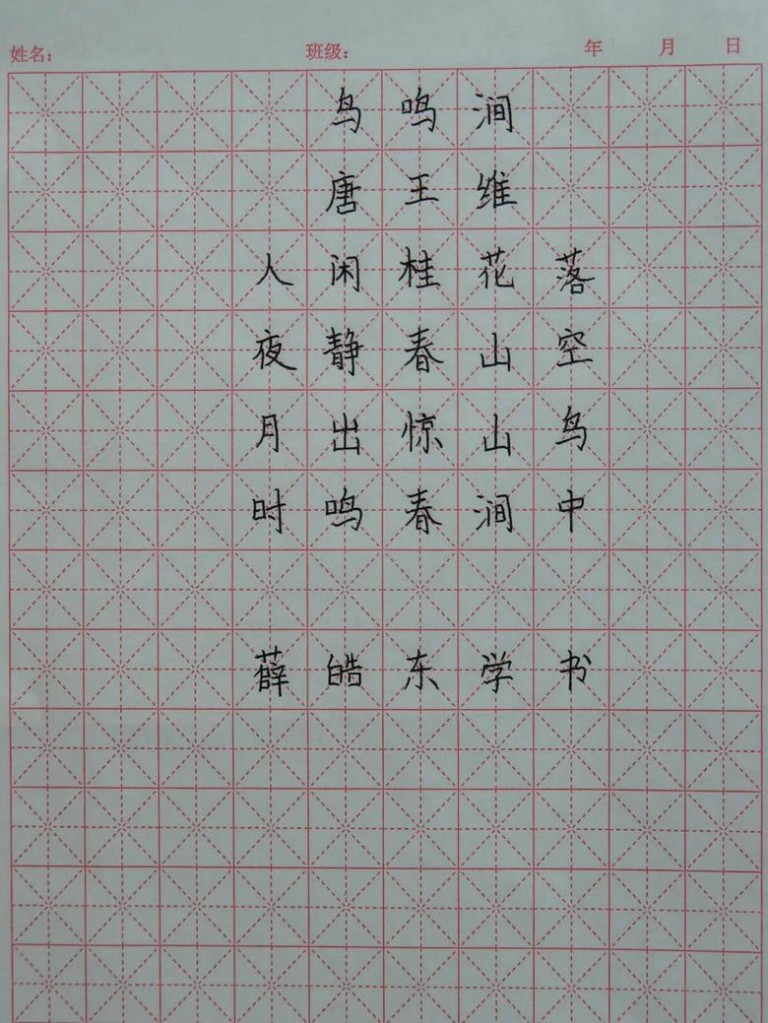 姓名： 班级： 年 月 日
鸟鸣涧
唐王维
人闲桂花落
夜静春山空
月出惊山鸟
时鸣春涧中
薛皓东学书